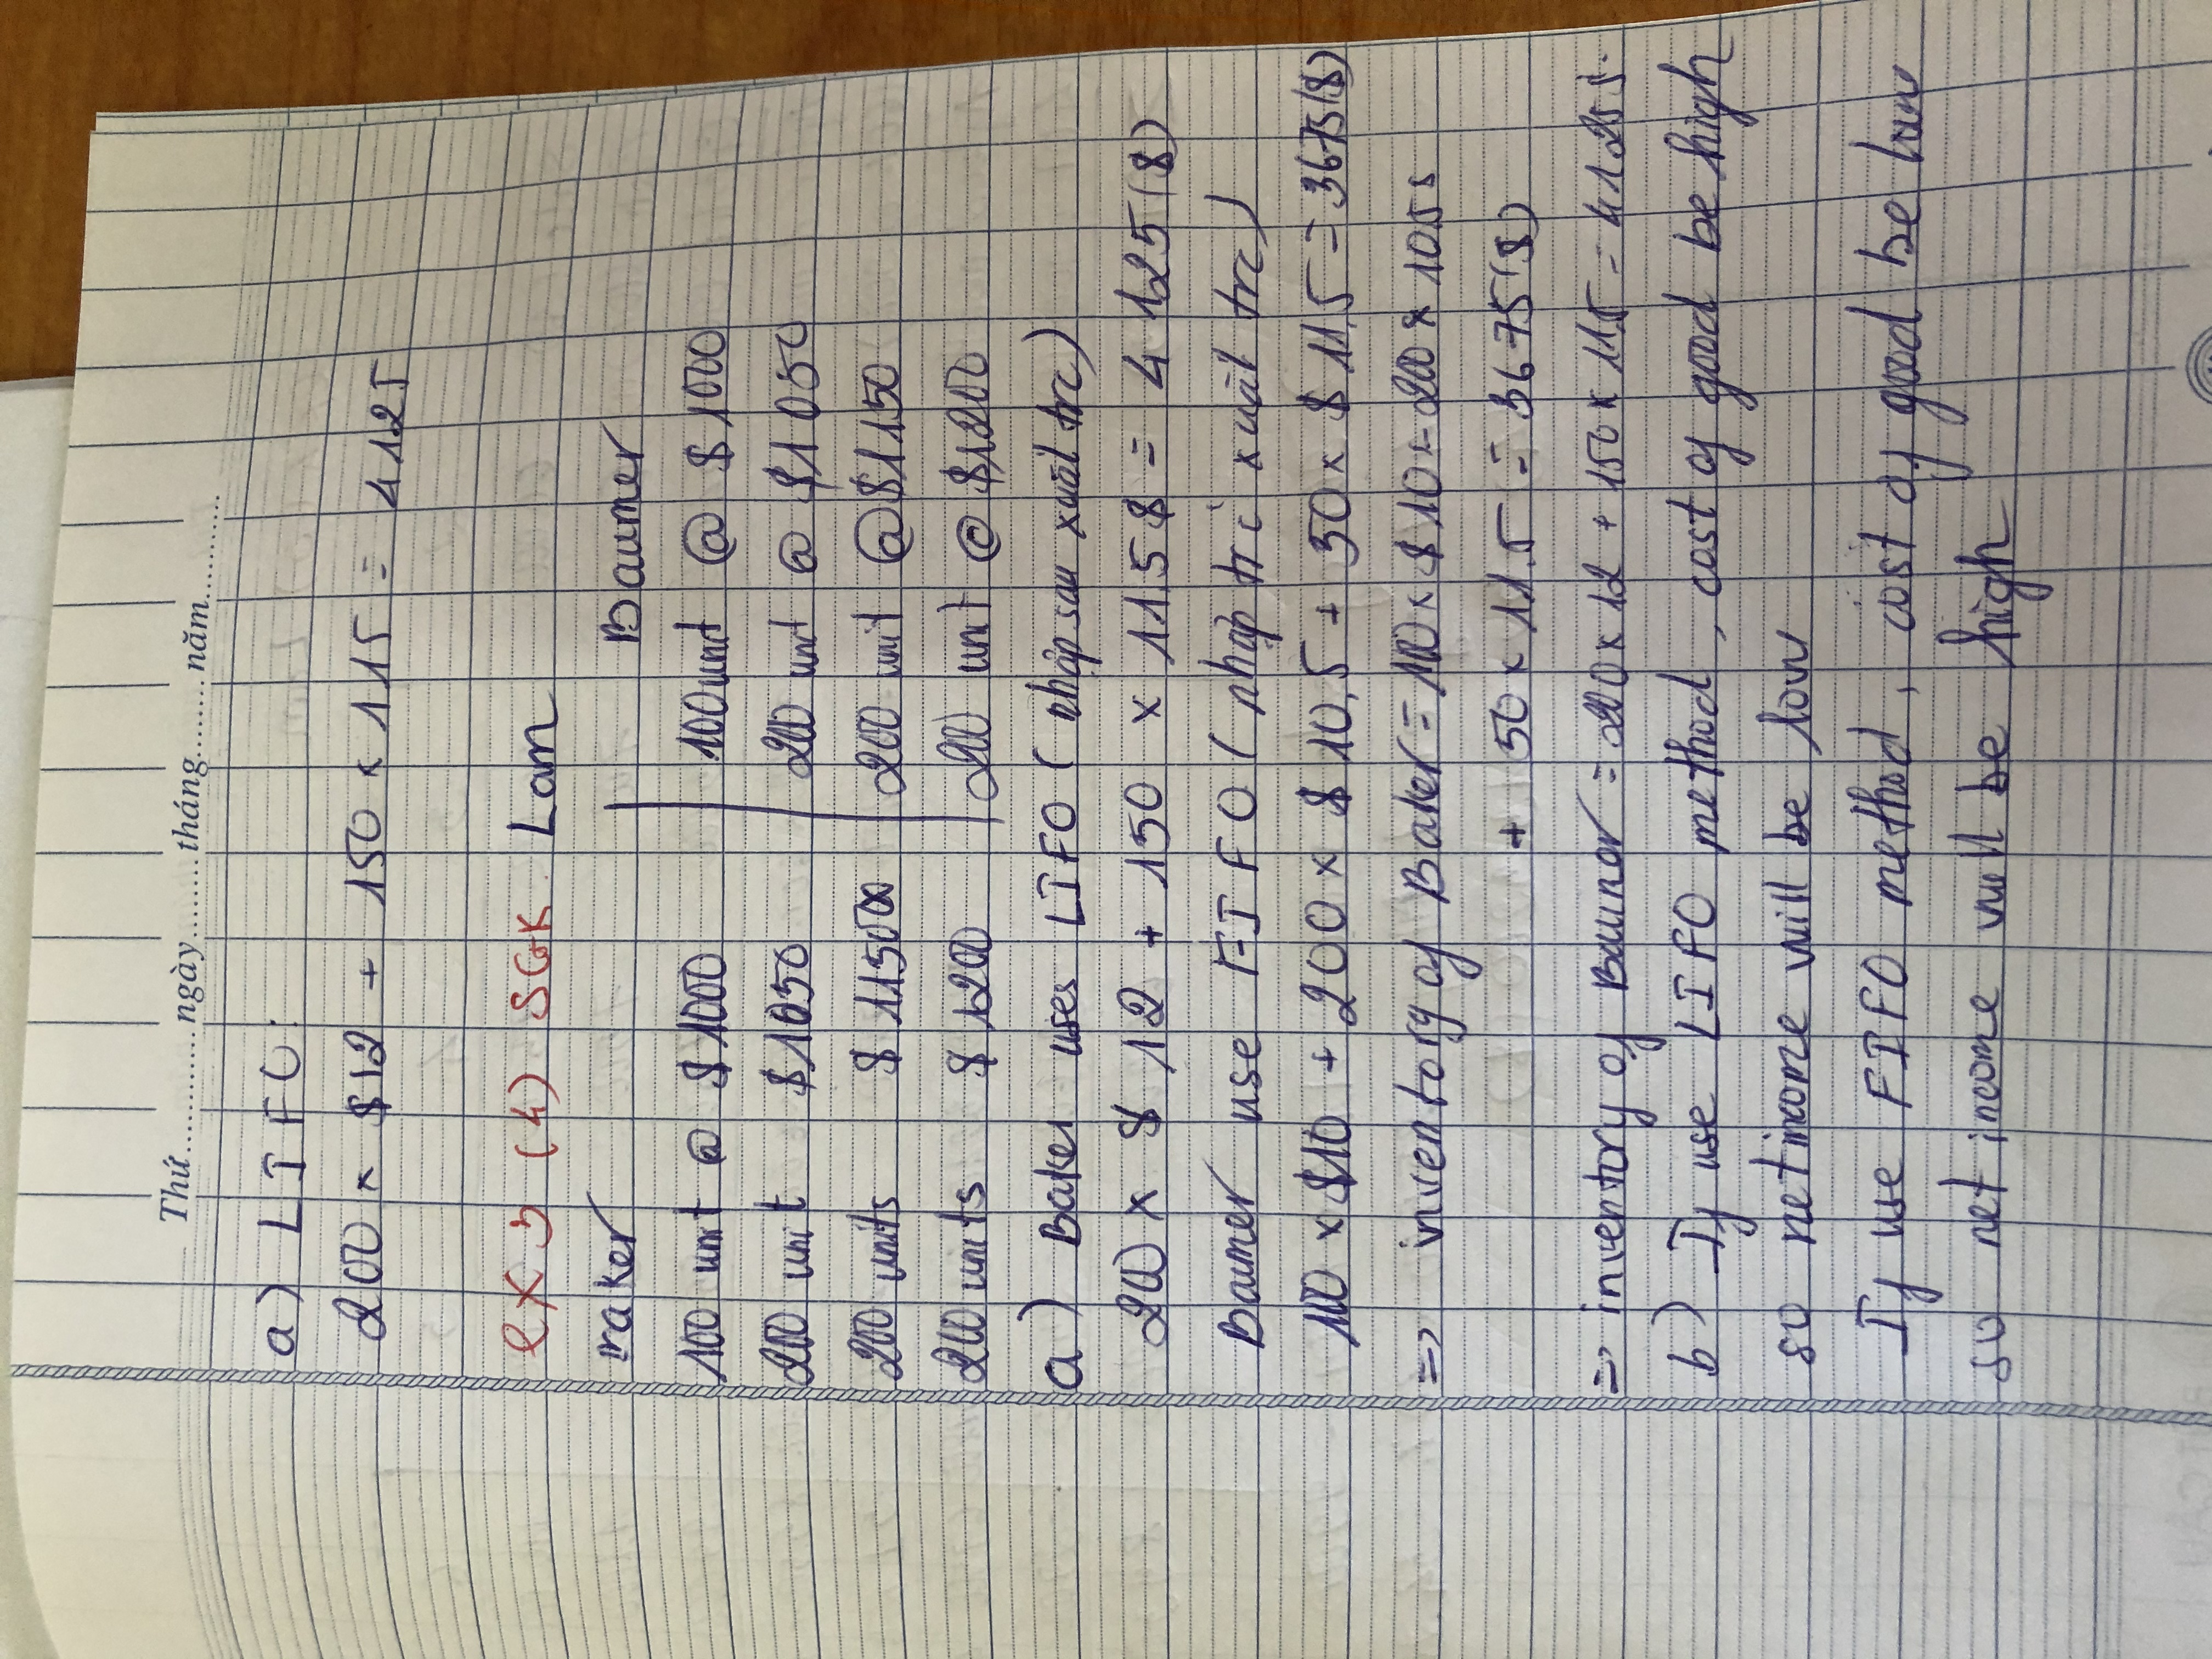 Thứ............ngày.........tháng.........năm............
a) LIFO:
200 x $12 + 150 x 115 = 4125
ex 5 (4) SGK Lam
Baker Baumer
100 unit @ $1000 100 unit @ $1000
200 unit $1050 200 unit @ $1050
200 units $11500 200 unit @ $1150
200 units $1200 200 unit @ $1200
a) Baker uses LIFO (nhập sau xuất trc)
200 x $12 + 150 x 11.5$ = 4 125($)
Baumer use FIFO (nhập trc xuất trc)
100 x $10 + 200 x $10,5 + 50 x $11,5 = 3675($)
=> inventory of Baker = 100 x $10 + 200 x 10.5s
+ 50 x 11.5 = 3675($)
=> inventory of Baunor = 200 x 12 + 150 x 11.5 = 4125$.
b) If use LIFO method, cost of good be high
so net income will be low
If use FIFO method, cost of good be low
so net income will be high